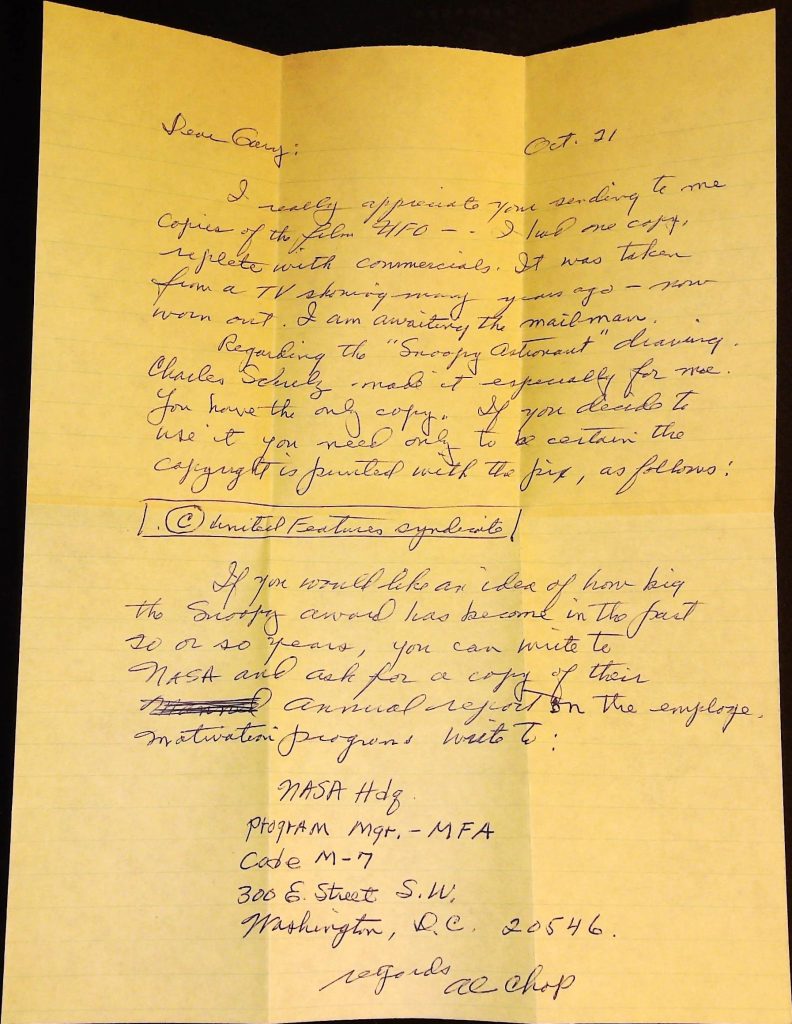 Dear Gary:
Oct. 21
I really appreciate your sending to me
copies of the film UFO -- I had one copy,
replete with commercials. It was taken
from a TV showing many years ago - now
worn out. I am awaiting the mailman.
Regarding the "Snoopy Astronaut" drawing.
Charles Schulz made it especially for me.
You have the only copy. If you decide to
use it you need only to be certain the
copyright is printed with the pix, as follows:
© United Features Syndicate
If you would like an idea of how big
the Snoopy award has become in the past
20 or so years, you can write to
NASA and ask for a copy of their
annual report on the employe
motivation programs write to:
NASA Hdq
Program Mgr. - MFA
Code M-7
300 E. Street S.W.
Washington, D.C. 20546.
regards
Al Chop